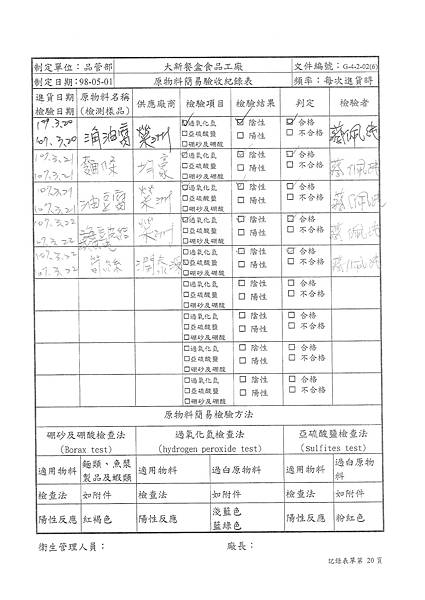 制定單位：品管部 大新餐盒食品工廠 文件編號：G-4-2-02(6)
制定日期：98-05-01 原物料簡易驗收紀錄表 頻率：每次進貨時
進貨日期 檢驗日期 原物料名稱 (檢測樣品) 供應廠商 檢驗項目 檢驗結果 判定 檢驗者
107.3.20 107.3.20 油豆腐 榮洲 ☑過氧化氫 □亞硫酸鹽 □硼砂及硼酸 ☑陰性 □陽性 ☑合格 □不合格
107.3.21 107.3.21 □過氧化氫 □亞硫酸鹽 ☑硼砂及硼酸 ☑陰性 □陽性 ☑合格 □不合格
107.3.21 107.3.21 油豆腐 榮洲 ☑過氧化氫 □亞硫酸鹽 □硼砂及硼酸 ☑陰性 □陽性 ☑合格 □不合格
107.3.22 107.3.22 榮洲 ☑過氧化氫 □亞硫酸鹽 □硼砂及硼酸 ☑陰性 □陽性 ☑合格 □不合格
107.3.22 107.3.22 筍絲 □過氧化氫 ☑亞硫酸鹽 □硼砂及硼酸 ☑陰性 □陽性 ☑合格 □不合格
□過氧化氫 □亞硫酸鹽 □硼砂及硼酸 □陰性 □陽性 □合格 □不合格
□過氧化氫 □亞硫酸鹽 □硼砂及硼酸 □陰性 □陽性 □合格 □不合格
□過氧化氫 □亞硫酸鹽 □硼砂及硼酸 □陰性 □陽性 □合格 □不合格
□過氧化氫 □亞硫酸鹽 □硼砂及硼酸 □陰性 □陽性 □合格 □不合格
原物料簡易檢驗方法
硼砂及硼酸檢查法 (Borax test) 過氧化氫檢查法 (hydrogen peroxide test) 亞硫酸鹽檢查法 (Sulfites test)
適用物料 麵類、魚漿製品及蝦類 適用物料 過白原物料 適用物料 過白原物料
檢查法 如附件 檢查法 如附件 檢查法 如附件
陽性反應 紅褐色 陽性反應 淺藍色 藍綠色 陽性反應 粉紅色
衛生管理人員： 廠長：
記錄表單第 20 頁